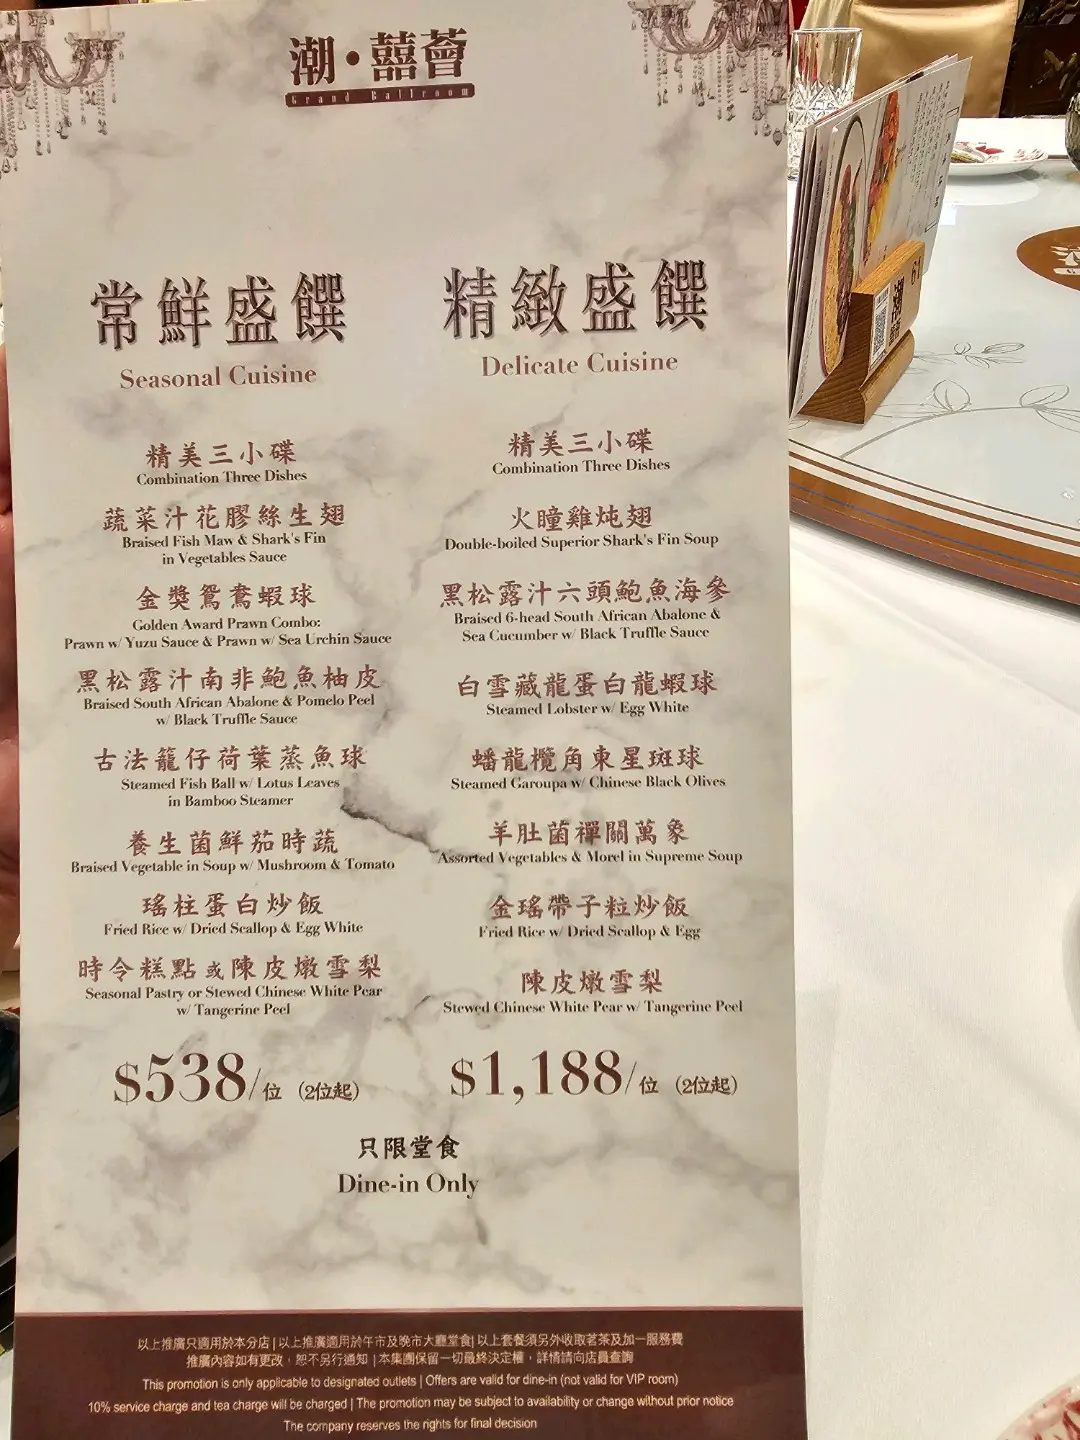 潮•囍薈
Grand Ballroom
常鮮盛饌
Seasonal Cuisine
精美三小碟
Combination Three Dishes
蔬菜汁花膠絲生翅
Braised Fish Maw & Shark's Fin
in Vegetables Sauce
金獎鴛鴦蝦球
Golden Award Prawn Combo:
Prawn w/ Yuzu Sauce & Prawn w/ Sea Urchin Sauce
黑松露汁南非鮑魚柚皮
Braised South African Abalone & Pomelo Peel
w/ Black Truffle Sauce
古法籠仔荷葉蒸魚球
Steamed Fish Ball w/ Lotus Leaves
in Bamboo Steamer
養生菌鮮茄時蔬
Braised Vegetable in Soup w/ Mushroom & Tomato
瑤柱蛋白炒飯
Fried Rice w/ Dried Scallop & Egg White
時令糕點或陳皮燉雪梨
Seasonal Pastry or Stewed Chinese White Pear
w/ Tangerine Peel
$538/位 (2位起)
精緻盛饌
Delicate Cuisine
精美三小碟
Combination Three Dishes
火瞳雞炖翅
Double-boiled Superior Shark's Fin Soup
黑松露汁六頭鮑魚海參
Braised 6-head South African Abalone &
Sea Cucumber w/ Black Truffle Sauce
白雪藏龍蛋白龍蝦球
Steamed Lobster w/ Egg White
蟠龍欖角東星斑球
Steamed Garoupa w/ Chinese Black Olives
羊肚菌禪關萬象
Assorted Vegetables & Morel in Supreme Soup
金瑤帶子粒炒飯
Fried Rice w/ Dried Scallop & Egg
陳皮燉雪梨
Stewed Chinese White Pear w/ Tangerine Peel
$1,188/位 (2位起)
只限堂食
Dine-in Only
以上推廣只適用於本分店 | 以上推廣適用於午市及晚市大廳堂食 | 以上套餐須另外收取茗茶及加一服務費
推廣內容如有更改，恕不另行通知 | 本集團保留一切最終決定權，詳情請向店員查詢
This promotion is only applicable to designated outlets | Offers are valid for dine-in (not valid for VIP room)
10% service charge and tea charge will be charged | The promotion may be subject to availability or change without prior notice
The company reserves the rights for final decision